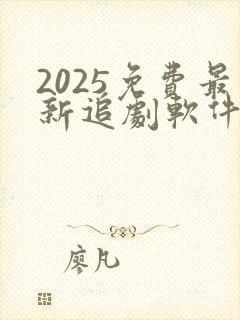 2025免費最
新追劇軟件
廖凡